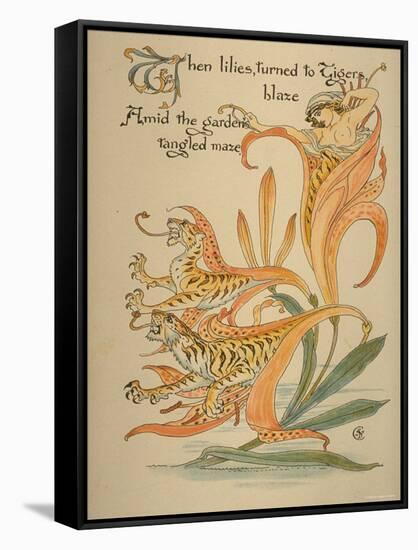 When lilies, turned to Tigers,
blaze
Amid the gardens
tangled maze